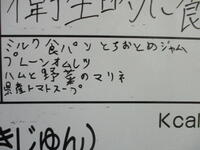 衛生的に食
ミルク食パン とちおとめジャム
プレーンオムレツ
ハムと野菜のマリネ
県産トマトスープ
Kcal
きじゅん)